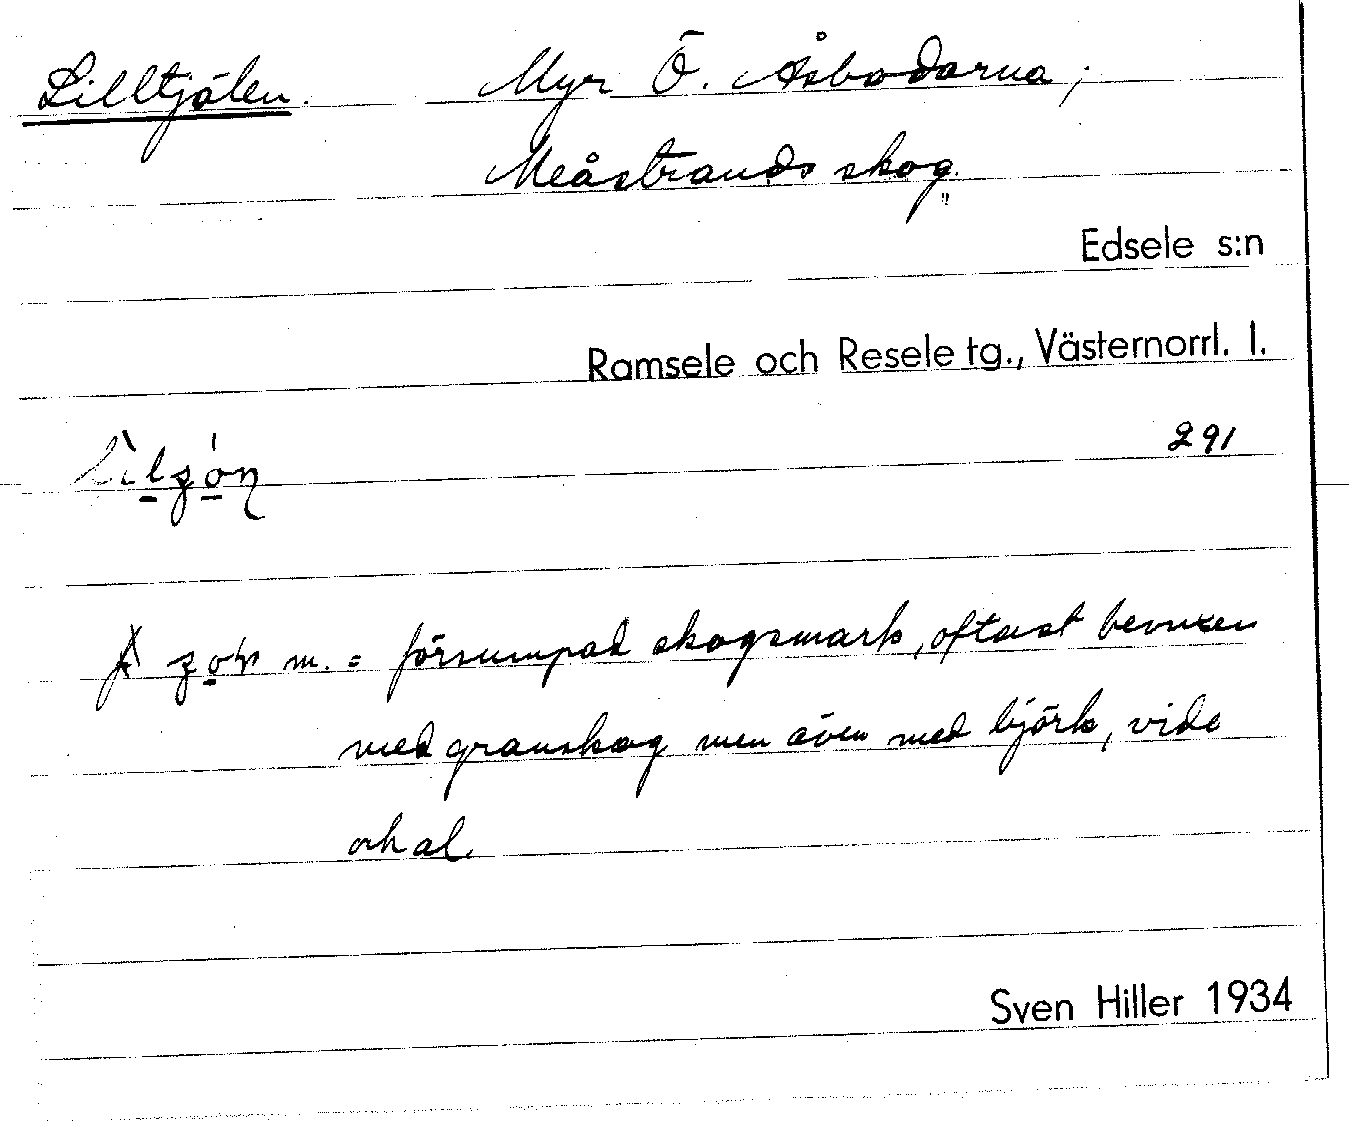 Lilltjälen. Myr Ö. Åsbodarna;
Meåstrands skog.
Edsele s:n
Ramsele och Resele tg., Västernorrl. l.
291
m. = försumpad skogsmark, oftast bevuxen
med granskog men även med björk, vide
och al.
Sven Hiller 1934